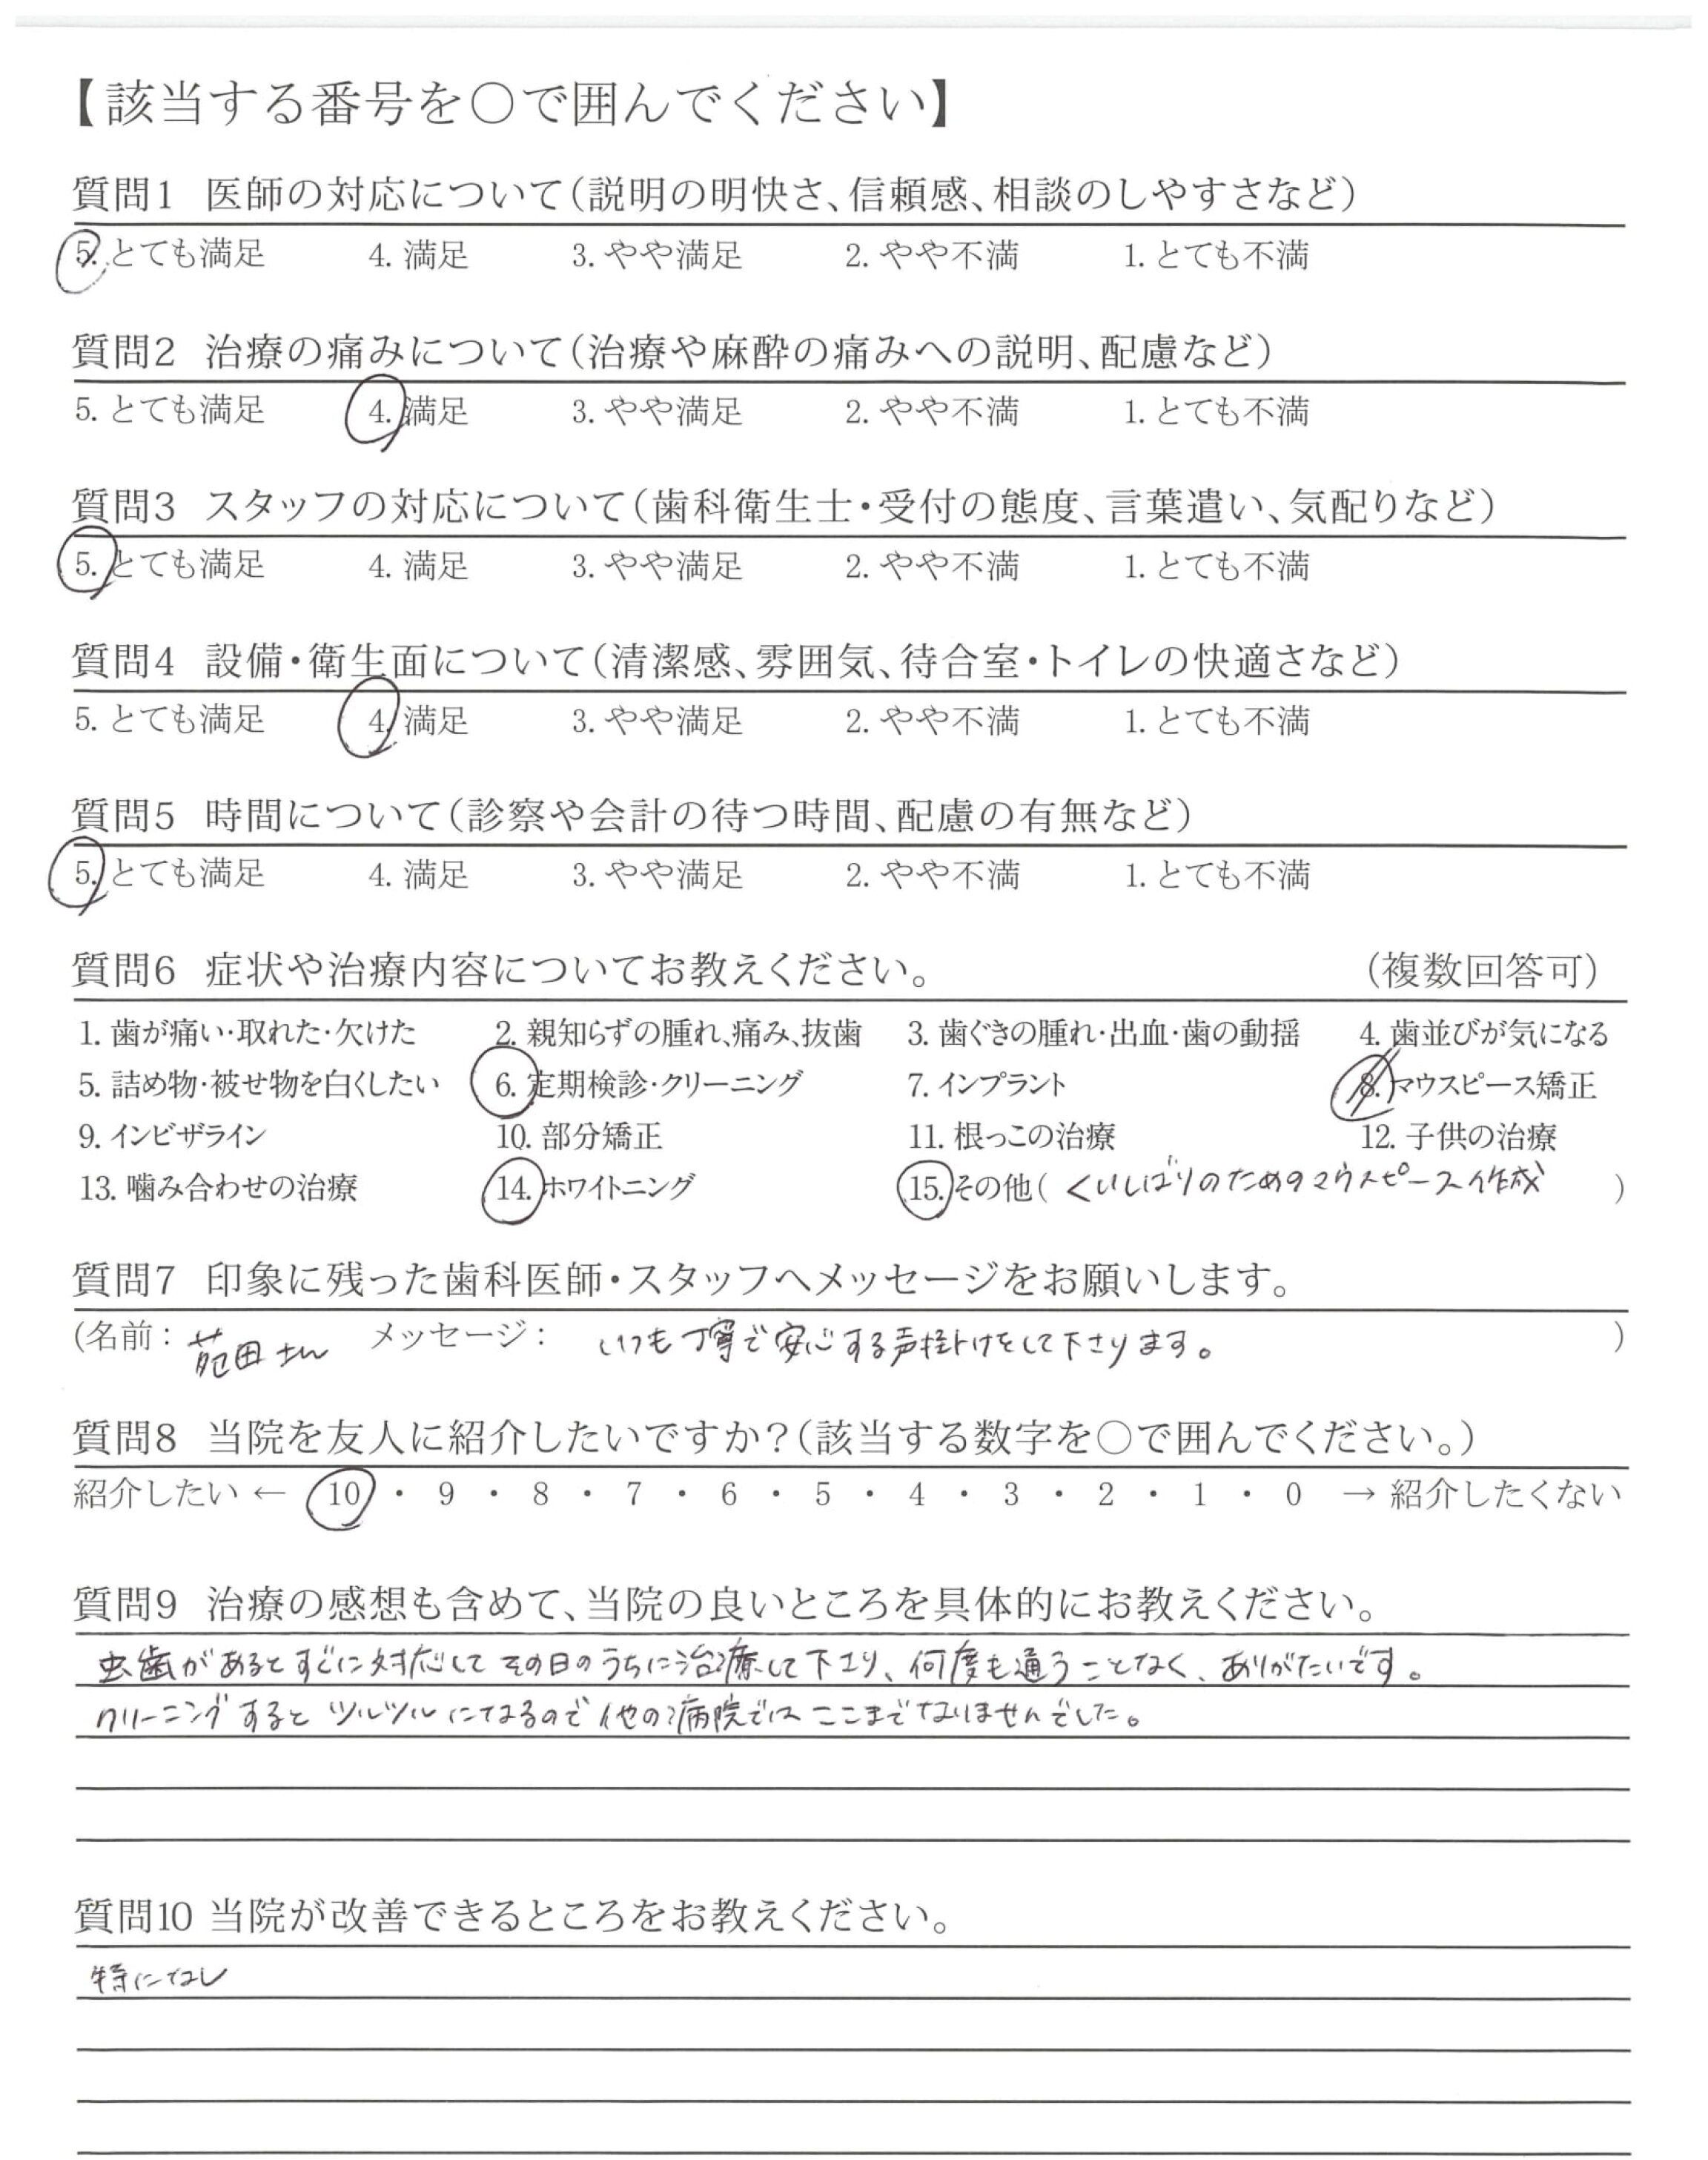 【該当する番号を○で囲んでください】
質問1 医師の対応について(説明の明快さ、信頼感、相談のしやすさなど)
5. とても満足 4. 満足 3. やや満足 2. やや不満 1. とても不満
質問2 治療の痛みについて(治療や麻酔の痛みへの説明、配慮など)
5. とても満足 4. 満足 3. やや満足 2. やや不満 1. とても不満
質問3 スタッフの対応について(歯科衛生士・受付の態度、言葉遣い、気配りなど)
5. とても満足 4. 満足 3. やや満足 2. やや不満 1. とても不満
質問4 設備・衛生面について(清潔感、雰囲気、待合室・トイレの快適さなど)
5. とても満足 4. 満足 3. やや満足 2. やや不満 1. とても不満
質問5 時間について(診察や会計の待つ時間、配慮の有無など)
5. とても満足 4. 満足 3. やや満足 2. やや不満 1. とても不満
質問6 症状や治療内容についてお教えください。 (複数回答可)
1. 歯が痛い・取れた・欠けた 2. 親知らずの腫れ、痛み、抜歯 3. 歯ぐきの腫れ・出血・歯の動揺 4. 歯並びが気になる
5. 詰め物・被せ物を白くしたい 6. 定期検診・クリーニング 7. インプラント 8. マウスピース矯正
9. インビザライン 10. 部分矯正 11. 根っこの治療 12. 子供の治療
13. 噛み合わせの治療 14. ホワイトニング 15. その他( くいしばりのためのマウスピース作成 )
質問7 印象に残った歯科医師・スタッフへメッセージをお願いします。
(名前: 苑田さん メッセージ: いつも丁寧で安心する声掛けをして下さります。 )
質問8 当院を友人に紹介したいですか?(該当する数字を○で囲んでください。)
紹介したい ← 10 ・ 9 ・ 8 ・ 7 ・ 6 ・ 5 ・ 4 ・ 3 ・ 2 ・ 1 ・ 0 → 紹介したくない
質問9 治療の感想も含めて、当院の良いところを具体的にお教えください。
虫歯があるとすぐに対応してその日のうちに治療して下さり、何度も通うことなく、ありがたいです。
クリーニングするとツルツルになるので他の病院ではここまでなりませんでした。
質問10 当院が改善できるところをお教えください。
特になし